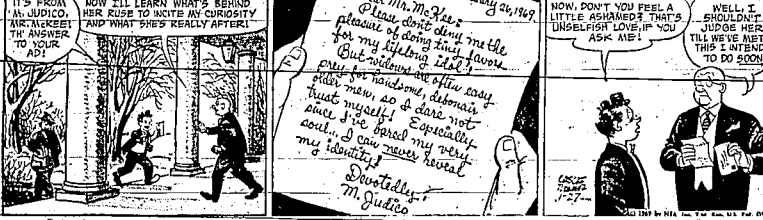 IT'S FROM
M. JUDICO,
MR. McKEE!
TH' ANSWER
TO YOUR
AD!
NOW I'LL LEARN WHAT'S BEHIND
HER RUSE TO INCITE MY CURIOSITY
AND WHAT SHE'S REALLY AFTER!
26, 1969
Mr. McKee:
Please don't deny me the
pleasure of doing tiny favors
for my lifelong idol!
But widows are often easy
prey for handsome, debonair
older men, so I dare not
trust myself! Especially
since I've bared my very
soul... I can never reveal
my identity!
Devotedly,
M. Judico
NOW, DON'T YOU FEEL A
LITTLE ASHAMED? THAT'S
UNSELFISH LOVE, IF YOU
ASK ME!
WELL, I
SHOULDN'T
JUDGE HER
TILL WE'VE MET
THIS I INTEND
TO DO SOON
LESLIE
TURNER
1-27
1969 by NEA, Inc. T.M. Reg. U.S. Pat.